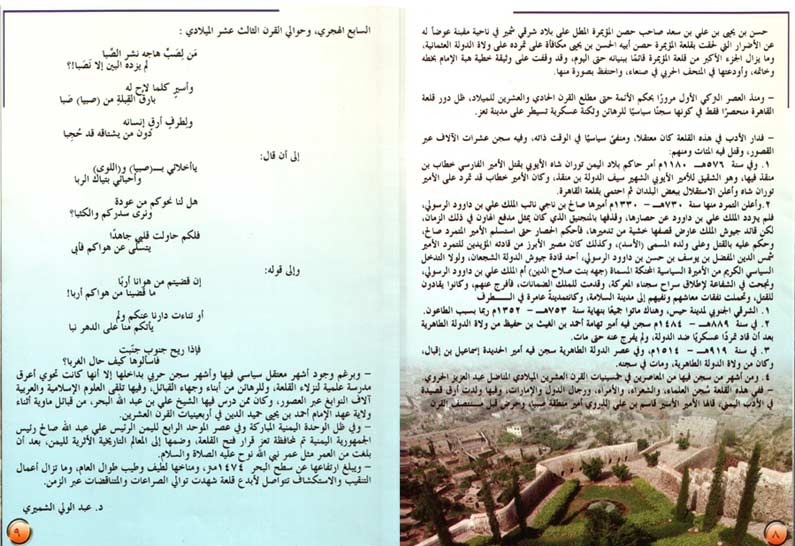 حسن بن يحيى بن علي بن سعد صاحب حصن المؤيمرة المطل على بلاد شرقي شمير في ناحية مقبنة عوضاً له
عن الأضرار التي لحقت بقلعة المؤيمرة حصن أبيه الحسن بن يحيى مكافأة على تمرده على ولاة الدولة العثمانية،
وما يزال الجزء الأكبر من قلعة المؤيمرة قائمًا ببنيانه حتى اليوم، وقد وقفت على وثيقة خطية هبة الإمام بخطه
وخاتمه، وأودعتها في المتحف الحربي في صنعاء، واحتفظ بصورة منها.
– ومنذ العصر التركي الأول مرورًا بحكم الأئمة حتى مطلع القرن الحادي والعشرين للميلاد، ظل دور قلعة
القاهرة منحصرًا فقط في كونها سجنًا سياسيًا للرهائن وثكنة عسكرية تسيطر على مدينة تعز.
– فدار الأدب في هذه القلعة كان معتقلا، ومنفىً سياسيًا في الوقت ذاته، وفيه سجن عشرات الآلاف عبر
القصور، وقتل فيه المئات ومنهم:
١. وفي سنة ٥٧٦هـ – ١١٨٠م أمر حاكم بلاد اليمن توران شاه الأيوبي بقتل الأمير الفارسي خطاب بن
منقذ فيها، وهو الشقيق للأمير الأيوبي الشهير سيف الدولة بن منقذ، وكان الأمير خطاب قد تمرد على الأمير
توران شاه وأعلن الاستقلال ببعض البلدان ثم احتمى بقلعة القاهرة.
٢. وأعلن التمرد منها سنة ٧٣٠هـ – ١٣٣٠م أميرها صالح بن ناجي نائب الملك علي بن داوود الرسولي،
فلم يتردد الملك علي بن داوود عن حصارها، وقذفها بالمنجنيق الذي كان يمثل مدفع الهاون في ذلك الزمان،
لكن قائد جيوش الملك عارض قصفها خشية من تدميرها، فأحكم الحصار حتى استسلم الأمير التمرد صالح،
وحكم عليه بالقتل وعلى ولده المسمى (الأسد)، وكذلك كان مصير الأبرز من قادته المؤيدين للتمرد الأمير
شمس الدين المفضل بن يوسف بن حسن بن داوود الرسولي، أحد قادة جيوش الدولة الشجعان، ولولا التدخل
السياسي الكريم من الأميرة السياسية المحنكة المسماة (جهة بنت صلاح الدين) أم الملك علي بن داوود الرسولي،
ونجحت في الشفاعة لإطلاق سراح سجناء المعركة، وقدمت للملك الضمانات، فأفرج عنهم، وكانوا يقادون
للقتل، وتحملت نفقات معاشهم ونفيهم إلى مدينة السلامة، وكانت مدينةً عامرة في الـــطرف
١. الشرقي الجنوبي لمدينة حيس، وهناك ماتوا جميعًا بنهاية سنة ٧٥٣هـ – ١٣٥٢م ربما بسبب الطاعون.
٢. في سنة ٨٨٩هـ – ١٤٨٤م سجن فيه أمير تهامة أحمد بن الغيث بن حفيظ من ولاة الدولة الطاهرية
بعد أن قاد تمردًا عسكريًا ضد الدولة، ولم يفرج عنه حتى مات.
٣. في سنة ٩١٩هـ – ١٥١٤م، وفي عصر الدولة الطاهرية سجن فيه أمير الحديدة إسماعيل بن إقبال،
وكان من ولاة الدولة الطاهرية، ومات في سجنه.
٤. ومن أشهر من سجن فيها من المعاصرين في خمسينيات القرن العشرين الميلادي المناضل عبد العزيز الحروي.
– ففي هذه القلعة سُجن العلماء، والشعراء، والأمراء، ورجال الدول والإمارات، وفيها ولدت أرق قصيدة
في الأدب اليمني، قالها الأمير الأسير قاسم بن علي الذروي أمير منطقة صبيا، وحرض قبل منتصف القرن
٨
السابع الهجري، وحوالي القرن الثالث عشر الميلادي :
مَن لِصَبٍّ هاجه نشر الصَّبا
لم يزده البين إلا نَصَبا!؟
وأسيرٍ كلما لاح له
بارق القبلةِ من (صبيا) صَبا
ولِطرفٍ أرقٍ إنسانه
دون من يشتاقه قد حُجِبا
إلى أن قال:
ياأخلائي بـــ(صبيا) و(اللوى)
وأحبائي بتياك الربا
هل لنا نحوكم من عودة
ونرى سدركم والكثبا؟
فلكم حاولت قلبي جاهدًا
يتسلَّى عن هواكم فأبى
وإلى قوله:
إن قضيتم من هوانا أربًا
ما قضينا من هواكم أربا!
أو تناءت دارنا عنكم ولم
يأتكم منا على الدهر نبا
فإذا ريح جنوبٍ جنَّبت
فاسألوها كيف حال الغربا؟
– وبرغم وجود أشهر معتقل سياسي فيها وأشهر سجن حربي بداخلها إلا أنها كانت تحوي أعرق
مدرسة علمية لنزلاء القلعة، وللرهائن من أبناء وجهاء القبائل، وفيها تلقى العلوم الإسلامية والعربية
آلاف النوابغ عبر العصور، وكان ممن درس فيها الشيخ علي بن عبد الله البحر، من قبائل ماوية أثناء
ولاية عهد الإمام أحمد بن يحيى حميد الدين في أربعينيات القرن العشرين.
– وفي ظل الوحدة اليمنية المباركة وفي عصر الموحد الرابع لليمن الرئيس علي عبد الله صالح رئيس
الجمهورية اليمنية تم لمحافظة تعز قرار فتح القلعة، وضمها إلى المعالم التاريخية الأثرية لليمن، بعد أن
بلغت من العمر مثل عمر نبي الله نوح عليه الصلاة والسلام.
– ويبلغ ارتفاعها عن سطح البحر ١٤٧٤متر، ومناخها لطيف وطيب طوال العام، وما تزال أعمال
التنقيب والاستكشاف تتواصل لأبدع قلعة شهدت توالي الصراعات والمتناقضات عبر الزمن.
د. عبد الولي الشميري
٩